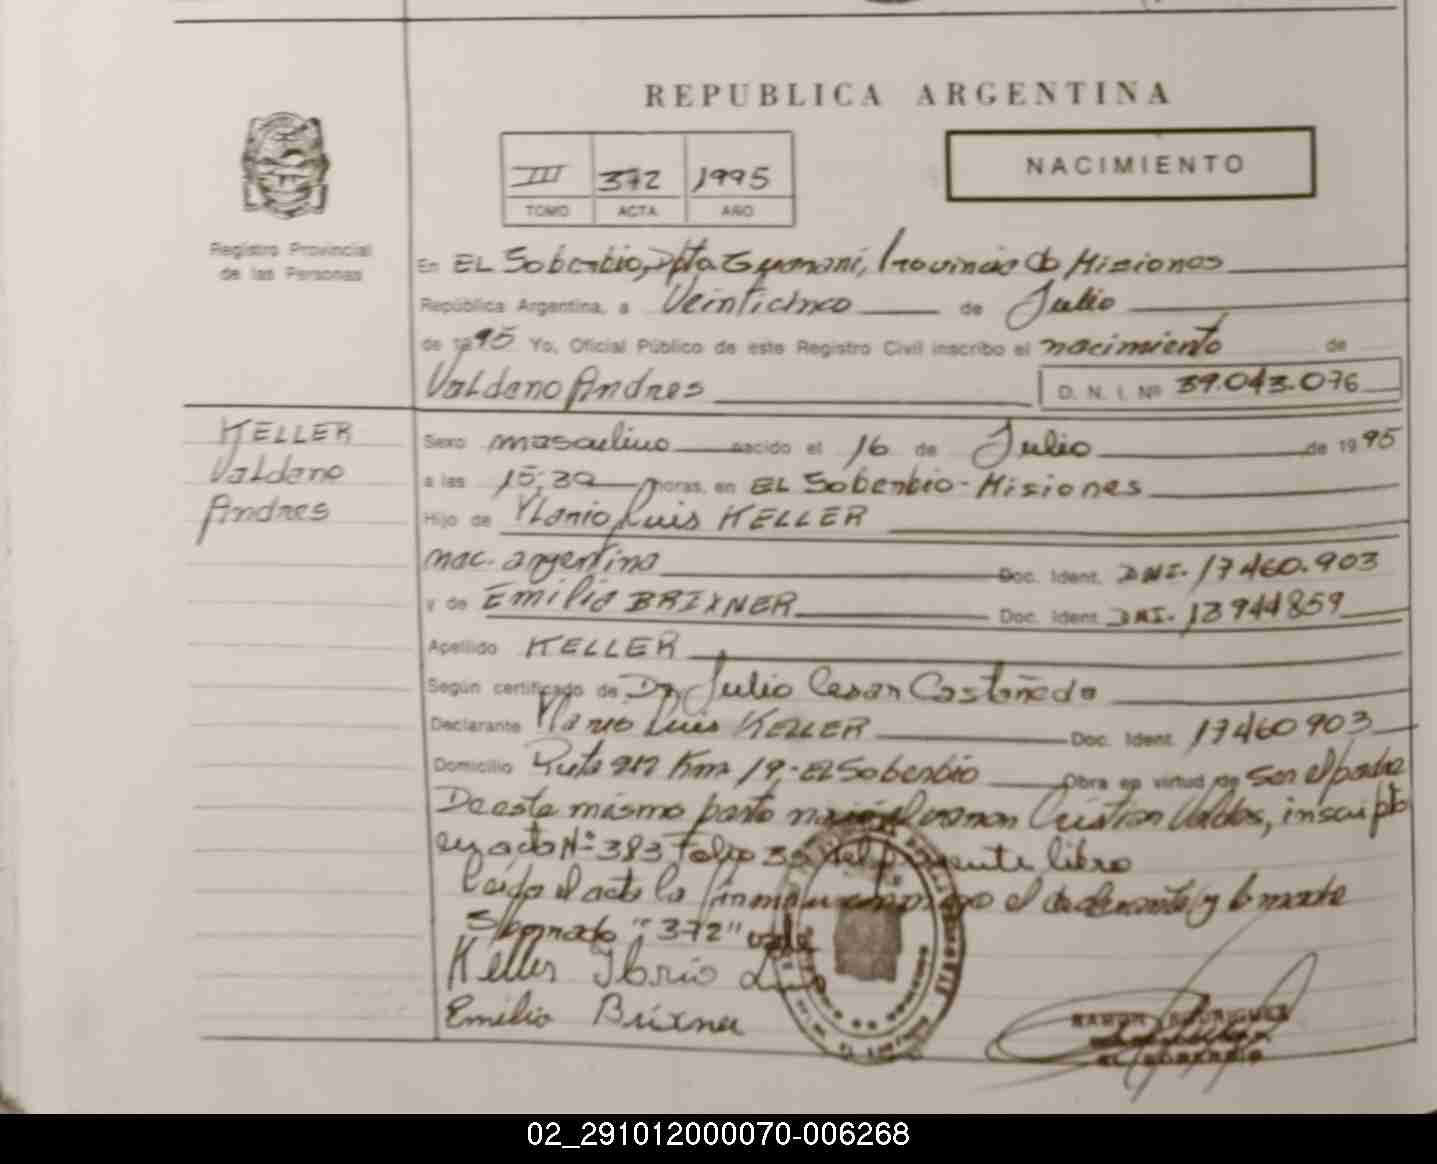 REPUBLICA ARGENTINA
III 372 1995
TOMO ACTA AÑO
NACIMIENTO
Registro Provincial
de las Personas
En EL Soberbio, Dpto Guarani, Provincia de Misiones
República Argentina, a Veinticinco de Julio
de 1995 Yo, Oficial Público de este Registro Civil inscribo el nacimiento de
Valdano Andres D. N. I. Nº 39.043.076
KELLER
Valdano
Andres
Sexo masculino nacido el 16 de Julio de 1995
a las 15,30 horas, en EL Soberbio - Misiones
Hijo de Mario Luis KELLER
nac. argentina Doc. Ident. DNI. 17460.903
y de Emilia BRIXNER Doc. Ident. DNI. 13944859
Apellido KELLER
Según certificado de Dr. Julio Cesar Castañeda
Declarante Mario Luis KELLER Doc. Ident. 17460903
Domicilio Ruta 212 Km 19, - EL Soberbio Obra en virtud de Ser el padre
De este mismo parto nació el varon Cristian Valdos, inscripto
en acta Nº 383 Folio del presente libro
Leida el acta la firma el declarante y la madre
S/borrado "372" vale
Keller Mario Luis
Emilia Brixner
RAMON RODRIGUEZ
EL SOBERBIO
02_291012000070-006268